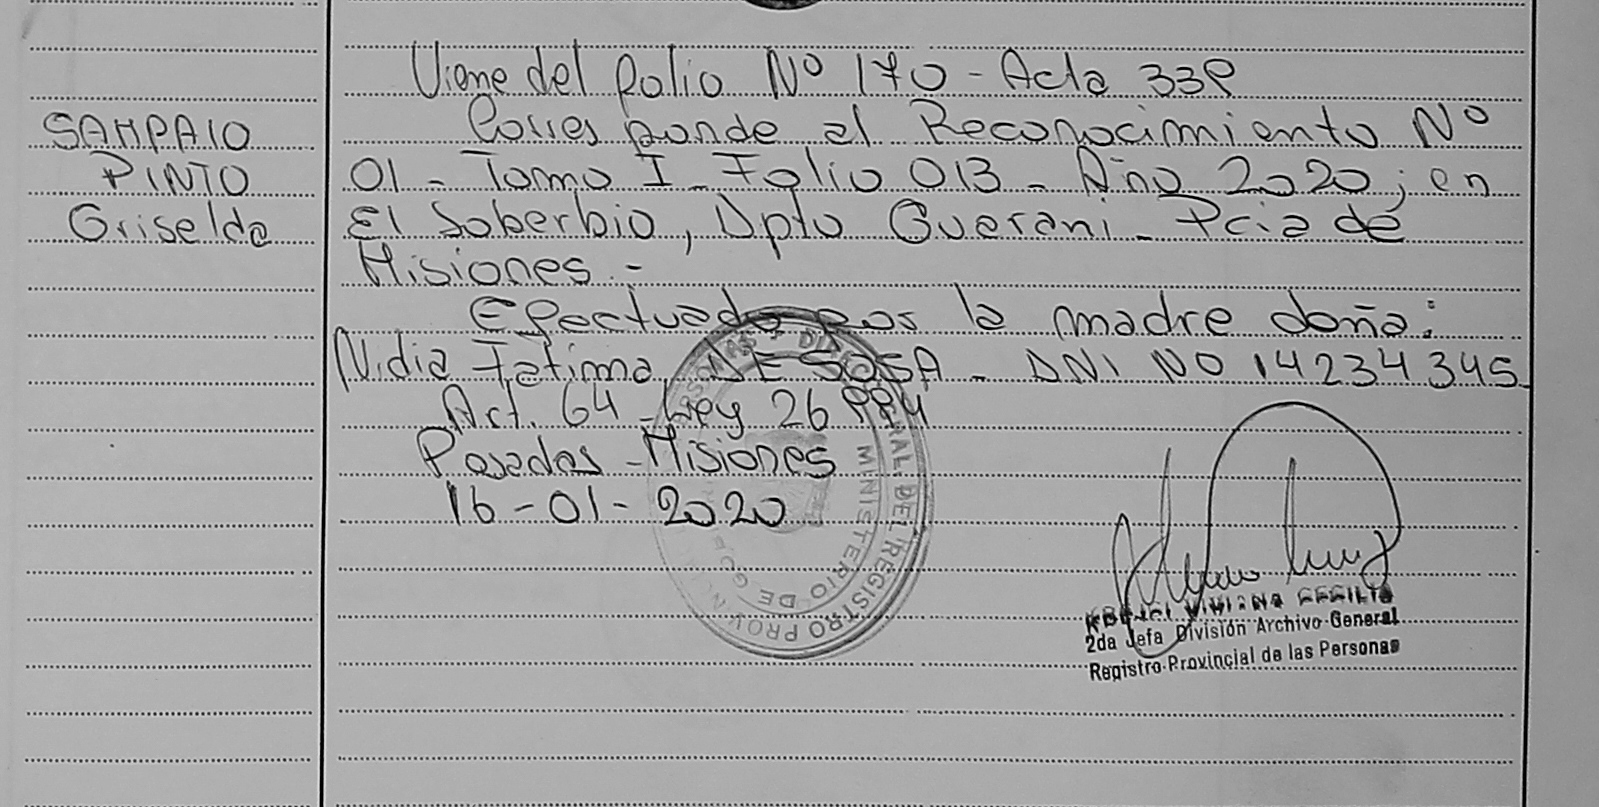 SAMPAIO
PINTO
Griselda
Viene del folio Nº 170 - Acta 339
Corresponde al Reconocimiento Nº
01 - Tomo I - Folio 013 - Año 2020; en
El Soberbio, Dpto Guarani - Pcia de
Misiones.-
Efectuado por la madre doña:
Nidia Fatima DE SOSA - DNI NO 14234345
Art. 64 - Ley 26994
Posadas - Misiones
16-01-2020
DIRECCIÓN GENERAL DEL REGISTRO PROV.
MINISTERIO DE
VIVIANA CECILIA
2da Jefa División Archivo General
Registro Provincial de las Personas